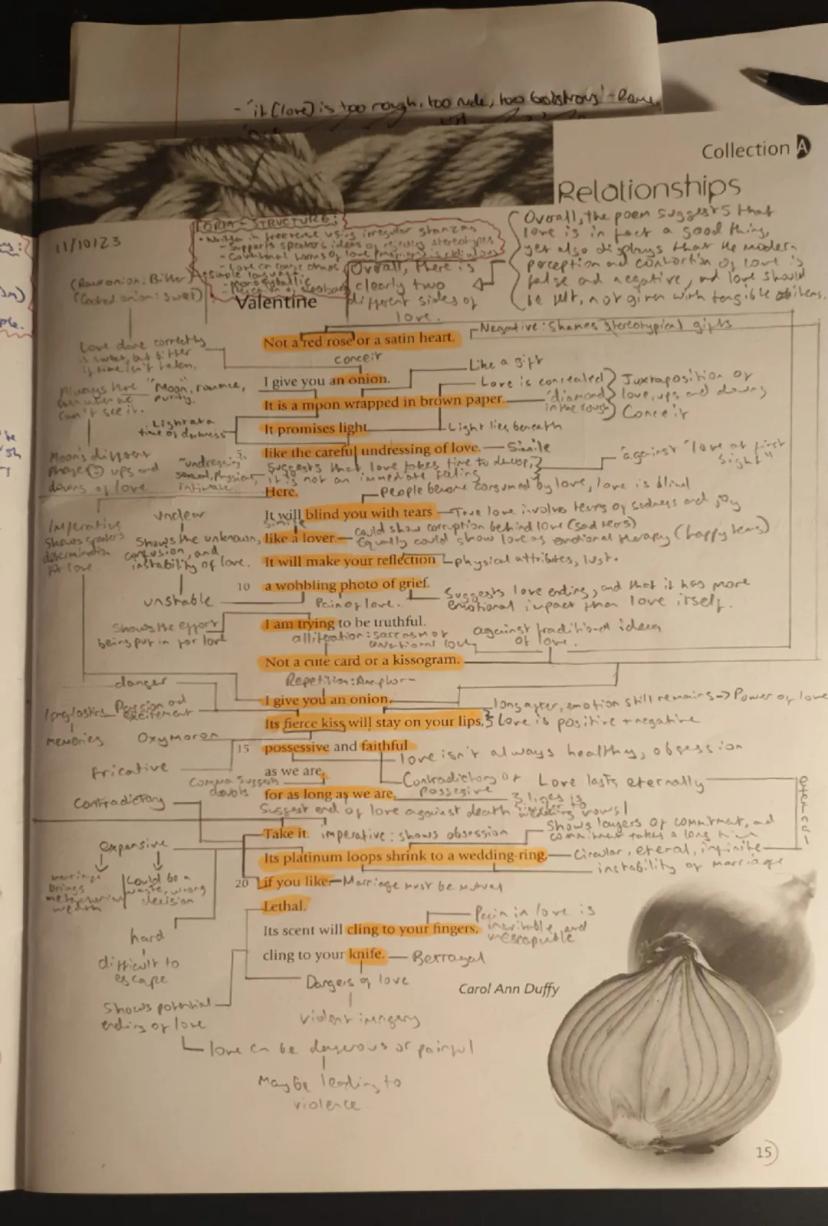 - 'it (love) is too rough, too rude, too boistrous' - Romeo
Collection A
Relationships
11/10/23
FORM + STRUCTURE:
- Written in free verse using irregular stanzas
- Supports speakers ideas of rejecting stereotypes
Overall, the poem suggests that
love is in fact a good thing,
yet also displays that the modern
perception and contortion of love is
false and negative, and love should
be felt, not given with tangible objects.
Overall, There is
clearly two
different sides of
love.
(Raw onion: Bitter
(Cooked onion: sweet)
Valentine
Not a red rose or a satin heart.
Negative: Shames stereotypical gifts
Love done correctly
is sweet, but bitter
if time isn't taken.
conceit
I give you an onion.
Like a gift
Always there
can't see it.
"Moon, romance,
purity.
It is a moon wrapped in brown paper.
Love is concealed
'diamond
in the rough'
Juxtaposition of
love, ups and downs
Conceit
Light at a
time of darkness
It promises light
Light lies beneath
Moon's different
phases ups and
downs of love
like the careful undressing of love.
Simile
"undressing"
sexual, physical,
intimate
Suggests that love takes time to develop,
it is not an immediate feeling
"against "love at first
sight"
Here.
People become consumed by love, love is blind
It will blind you with tears
True love involves tears of sadness and joy
Imperative
shows speakers
determination
for love
unclear
Shows the unknown,
confusion, and
instability of love.
unstable
simile
like a lover.
could show corruption behind love (sad tears)
Equally could show love as emotional therapy (happy tears)
It will make your reflection
physical attributes, lust.
10 a wobbling photo of grief.
Pain of love.
Suggests love ending, and that it has more
emotional impact than love itself.
Shows the effort
being put in for love
I am trying to be truthful.
alliteration: sarcasm of
conventional love
against traditional ideas
of love.
Not a cute card or a kissogram.
Repetition: Anaphor-
danger
I give you an onion.
long after, emotion still remains -> Power of love
long lasting
memories
Passion and
excitement
Its fierce kiss will stay on your lips,
Love is positive + negative
Oxymoron
fricative
15 possessive and faithful
love isn't always healthy, obsession
as we are,
Contradictory of
possesive
Love lasts eternally
Comma suggests
doubts
for as long as we are.
links to
wedding vows!
Contradictory
Suggest end of love against death
Take it.
imperative: shows obsession
Shows layers of commitment, and
commitment takes a long time
eternal
expensive
Its platinum loops shrink to a wedding-ring,
Circular, eteral, infinite
instability of marriage
marriage
brings
metaphorical
wealth
Could be a
waste, wrong
decision
20 if you like.
Marriage must be mutual
Lethal.
Its scent will cling to your fingers,
Pain in love is
inevitable, and
inescapable
hard
difficult to
escape
cling to your knife.
Betrayal
Dangers of love
Carol Ann Duffy
Shows potential
ending of love
violent imagery
love can be dangerous or painful
Maybe leading to
violence.
15